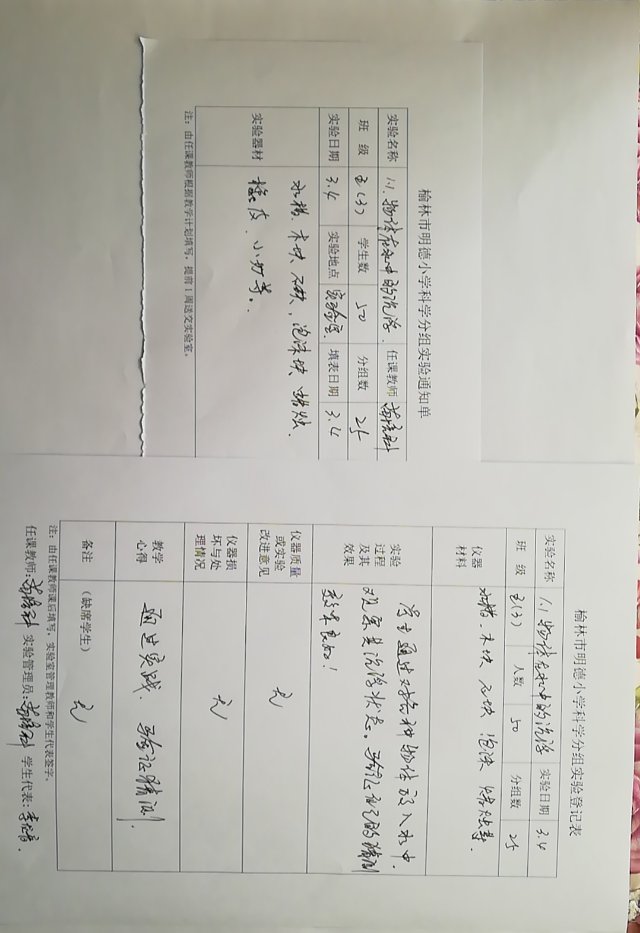 榆林市明德小学科学分组实验通知单
实验名称 1.1.物体在水中的沉浮. 任课教师
班 级 五(3) 学生数 50 分组数 25
实验日期 3.4 实验地点 实验室. 填表日期 3.4
实验器材 水槽. 木块. 石块. 泡沫块. 蜡烛.
橡皮. 小刀等.
注：由任课教师根据教学计划填写，提前1周送交实验室。
榆林市明德小学科学分组实验登记表
实验名称 1.1 物体在水中的沉浮 实验日期 3.4
班 级 五(3) 人数 50 分组数 25
仪器材料 水槽. 木块 石块 泡沫 蜡烛等.
实验过程及其效果 学生通过对各种物体放入水中.
观察其沉浮状态。验证自己的猜测
效果良好！
仪器质量或实验改进意见 无
仪器损坏与处理情况 无
教学心得 通过实践. 验证猜测.
备注 (缺席学生) 无
注：由任课教师课后填写，实验室管理教师和学生代表签字。
任课教师: 实验管理员: 学生代表: